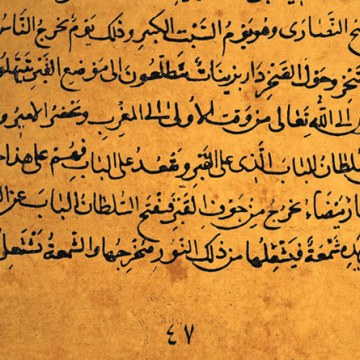 النصارى وهو يوم السبت الكبير وذلك يوم تخرج الناس
وحول القبر داربزينات متطلعون الى موضع القبر
الى الله تعالى من وقت الاولى الى المغرب وتحضر الامير و
السلطان الباب الذى على القبر ويقعد على الباب فهم على هذا
نار بيضاء تخرج من جوف القبر فيفتح السلطان الباب
شمعة فيشعلها من ذلك النور ويخرجها والشمعة تشتعل
٤٧